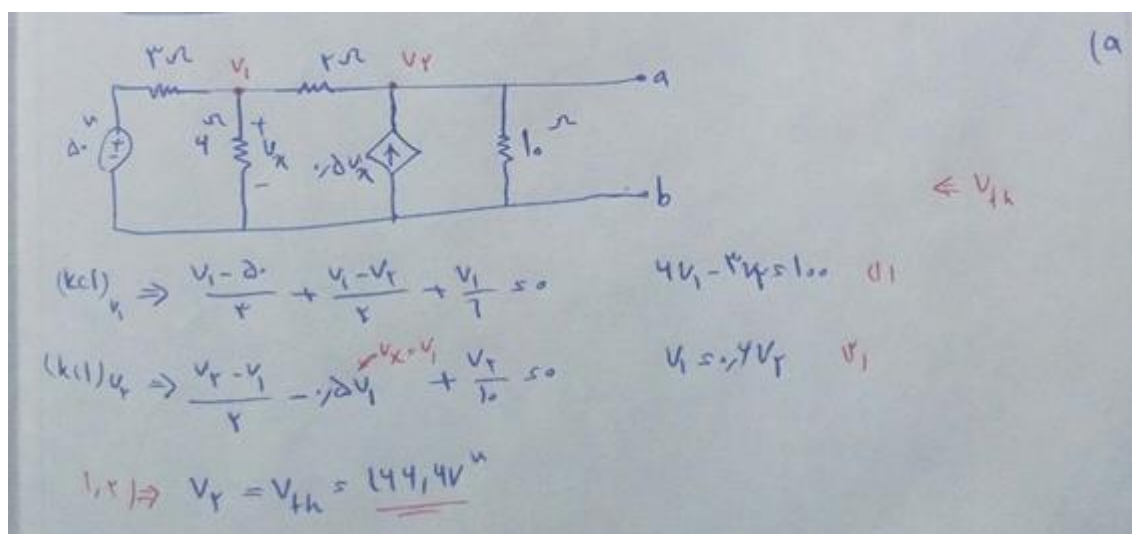 (a
۳Ω V₁ ۲Ω V۲ a
۵۰ v + − ۶ Ω + Vx − ۰,۵Vx ۱۰ Ω
b
⇐ Vth
(kcl)V₁ ⇒ (V₁ - ۵۰)/۳ + (V₁ - V۲)/۲ + V₁/۶ = ۰ ۶V₁ - ۳V۲ = ۱۰۰ (۱
(kcl)V۲ ⇒ (V۲ - V₁)/۲ - ۰,۵V₁ + V۲/۱۰ = ۰ Vx = V₁ V₁ = ۰,۶V۲ (۲
۱,۲) ⇒ V۲ = Vth = ۱۶۶,۶۷ v